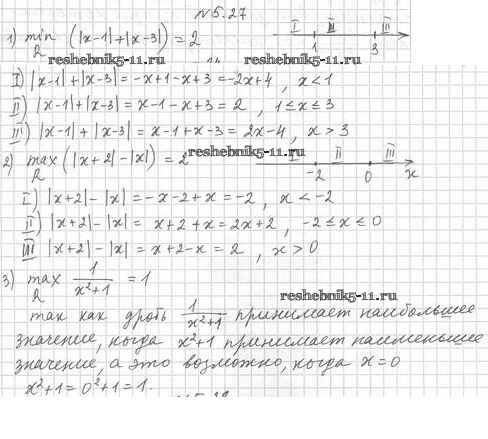 №5.27
1) min (|x-1|+|x-3|) = 2 I II III
R 1 3
reshebnik5-11.ru reshebnik5-11.ru
I) |x-1|+|x-3| = -x+1-x+3 = -2x+4, x<1
II) |x-1|+|x-3| = x-1-x+3 = 2, 1≤x≤3
III) |x-1|+|x-3| = x-1+x-3 = 2x-4, x>3
reshebnik5-11.ru
2) max (|x+2|-|x|) = 2 I II III
R -2 0 x
I) |x+2|-|x| = -x-2+x = -2, x<-2
II) |x+2|-|x| = x+2+x = 2x+2, -2≤x≤0
III |x+2|-|x| = x+2-x = 2, x>0
3) max 1/(x²+1) = 1
R
reshebnik5-11.ru
так как дробь 1/(x²+1) принимает наибольшее
значение, когда x²+1 принимает наименьшие
значение, а это возможно, когда x=0
x²+1=0²+1=1.